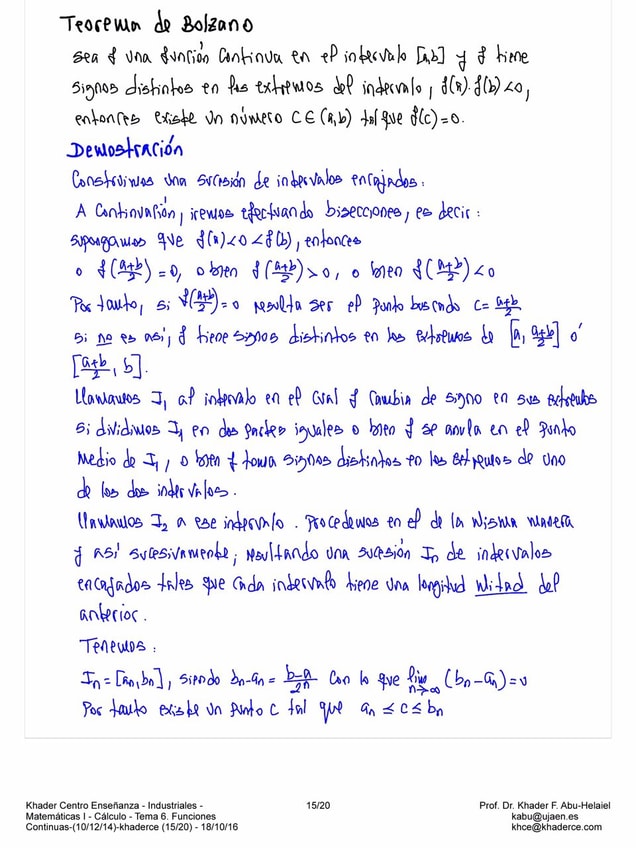 Teorema de Bolzano
Sea f una función continua en el intervalo [a,b] y f tiene
signos distintos en los extremos del intervalo, f(a)·f(b)<0,
entonces existe un número C∈(a,b) tal que f(c)=0.
Demostración
Construimos una sucesión de intervalos encajados:
A continuación, iremos efectuando bisecciones, es decir:
supongamos que f(a)<0<f(b), entonces
o f((a+b)/2)=0, o bien f((a+b)/2)>0, o bien f((a+b)/2)<0
Por tanto, si f((a+b)/2)=0 resulta ser el punto buscado c=(a+b)/2
si no es así, f tiene signos distintos en los extremos de [a, (a+b)/2] ó
[(a+b)/2, b].
Llamamos I₁ al intervalo en el cual f cambia de signo en sus extremos
si dividimos I₁ en dos partes iguales o bien f se anula en el punto
medio de I₁, o bien f toma signos distintos en los extremos de uno
de los dos intervalos.
Llamamos I₂ a ese intervalo. Procedemos en el de la misma manera
y así sucesivamente, resultando una sucesión Iₙ de intervalos
encajados tales que cada intervalo tiene una longitud mitad del
anterior.
Tenemos:
Iₙ=[aₙ,bₙ], siendo bₙ-aₙ=(b-a)/2ⁿ con lo que lim n→∞ (bₙ-aₙ)=0
Por tanto existe un punto c tal que aₙ ≤ c ≤ bₙ
Khader Centro Enseñanza - Industriales -
Matemáticas I - Cálculo - Tema 6. Funciones
Continuas-(10/12/14)-khaderce (15/20) - 18/10/16
15/20
Prof. Dr. Khader F. Abu-Helaiel
kabu@ujaen.es
khce@khaderce.com